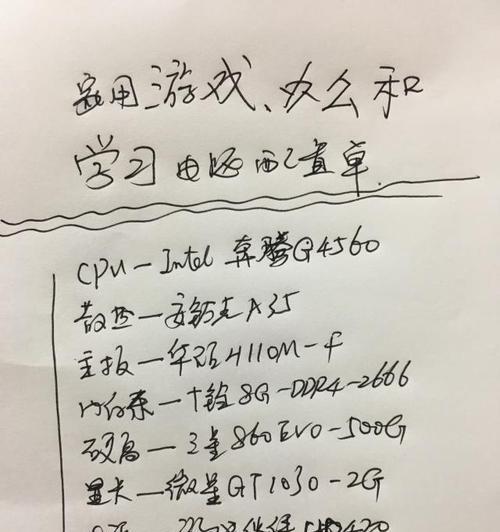 家用游戏、办公和
学习电脑配置单
CPU—Intel 奔腾G4560
散热—安钛克A35
主板—华硕H110M-F
内存条—十铨8G-DDR4-2666
硬盘—三星860EVO-500G
显卡—微星GT1030-2G